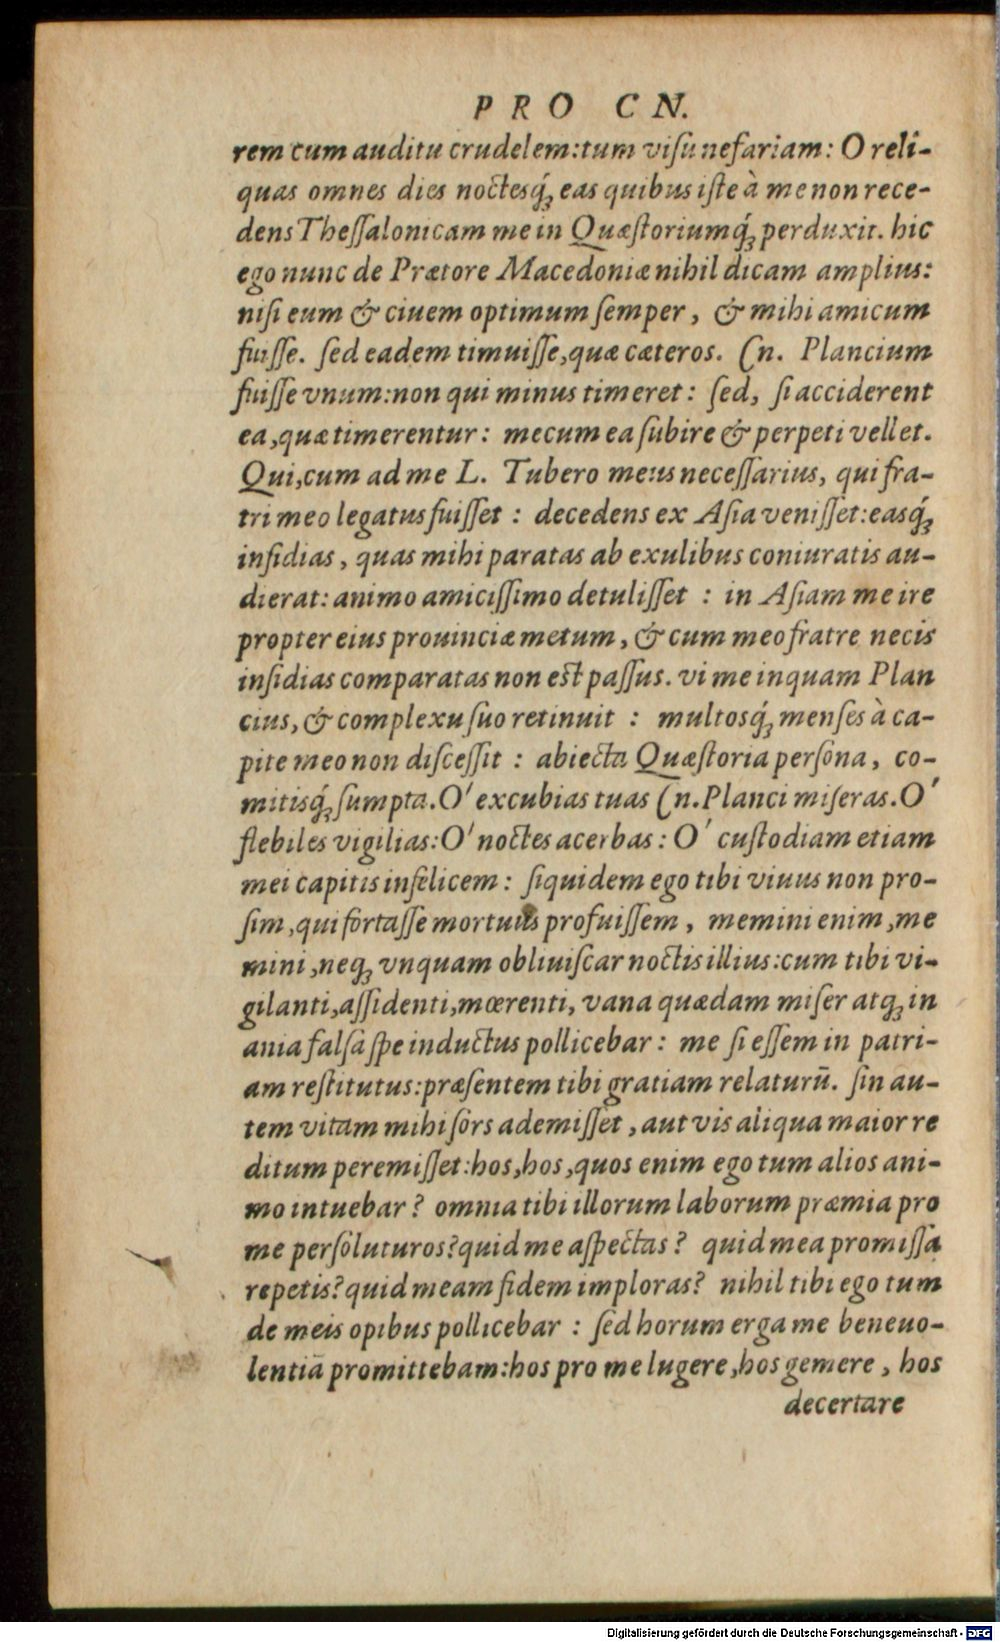 PRO CN.
rem cum auditu crudelem: tum viſu nefariam: O reli-
quas omnes dies noctesq́; eas quibus iſte à me non rece-
dens Theſſalonicam me in Quæſtoriumq́; perduxit. hic
ego nunc de Prætore Macedoniæ nihil dicam amplius:
niſi eum & ciuem optimum ſemper, & mihi amicum
fuiſſe. ſed eadem timuiſſe, quæ cæteros. Cn. Plancium
fuiſſe vnum: non qui minus timeret: ſed, ſi acciderent
ea, quæ timerentur: mecum ea ſubire & perpeti vellet.
Qui, cum ad me L. Tubero meus neceſſarius, qui fra-
tri meo legatus fuiſſet: decedens ex Aſia veniſſet: easq́;
inſidias, quas mihi paratas ab exulibus coniuratis au-
dierat: animo amiciſſimo detuliſſet: in Aſiam me ire
propter eius prouinciæ metum, & cum meo fratre necis
inſidias comparatas non est paſſus. vi me inquam Plan
cius, & complexu ſuo retinuit: multosq́; menſes à ca-
pite meo non diſceſſit: abiecta Quæſtoria perſona, co-
mitisq́; ſumpta. O' excubias tuas Cn. Planci miſeras. O'
flebiles vigilias: O' noctes acerbas: O' cuſtodiam etiam
mei capitis infelicem: ſiquidem ego tibi viuus non pro-
ſim, qui fortaſſe mortuus profuiſſem, memini enim, me
mini, neq; vnquam obliuiſcar noctis illius: cum tibi vi-
gilanti, aſſidenti, mœrenti, vana quædam miſer atq; in
ania falſa ſpe inductus pollicebar: me ſi eſſem in patri-
am reſtitutus: præſentem tibi gratiam relaturū. ſin au-
tem vitam mihi ſors ademiſſet, aut vis aliqua maior re
ditum peremiſſet: hos, hos, quos enim ego tum alios ani-
mo intuebar? omnia tibi illorum laborum præmia pro
me perſoluturos? quid me aſpectas? quid mea promiſſa
repetis? quid meam fidem imploras? nihil tibi ego tum
de meis opibus pollicebar: ſed horum erga me beneuo-
lentiā promittebam: hos pro me lugere, hos gemere, hos
decertare
Digitalisierung gefördert durch die Deutsche Forschungsgemeinschaft - DFG